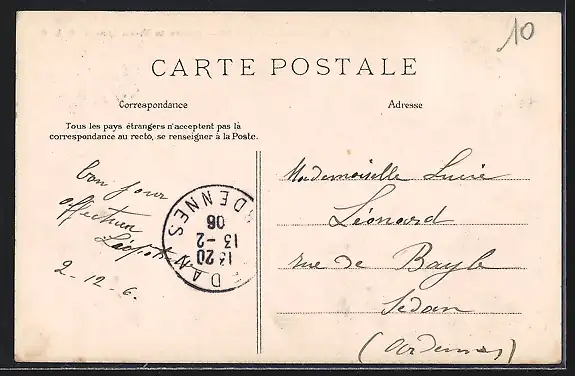 10
CARTE POSTALE
Correspondance
Adresse
Tous les pays étrangers n'acceptent pas la
correspondance au recto, se renseigner à la Poste.
bon jour
affection
2-12-6.
DAN
ARDENNES
13 20
13 -2
06
Mademoiselle Lucie
Léonard
rue de Bayle
Sedan
(Ardennes)